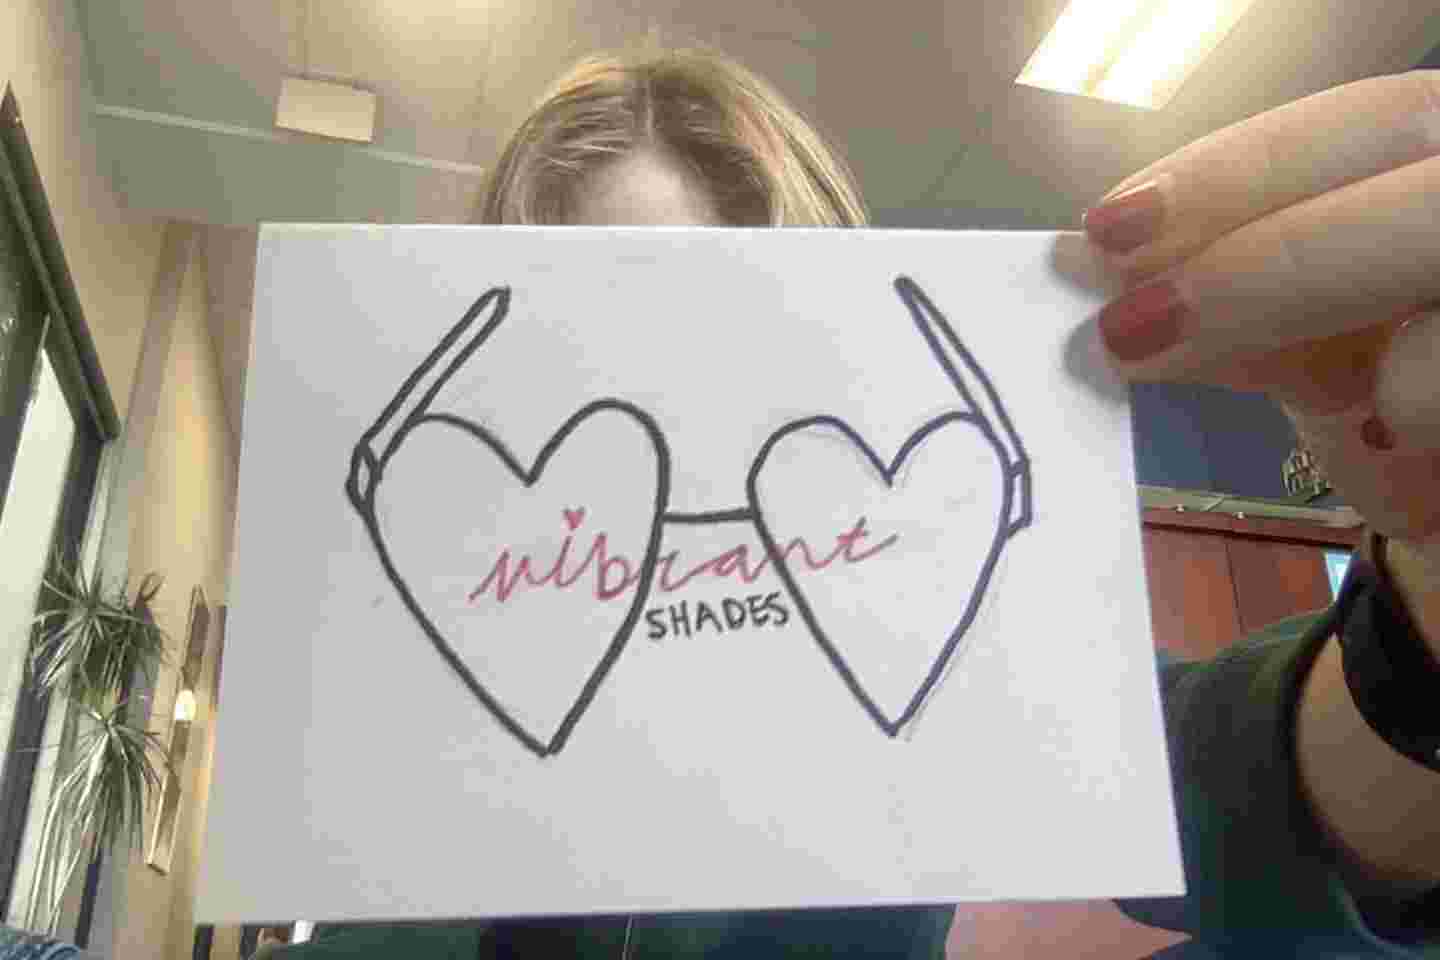 vibrant
SHADES